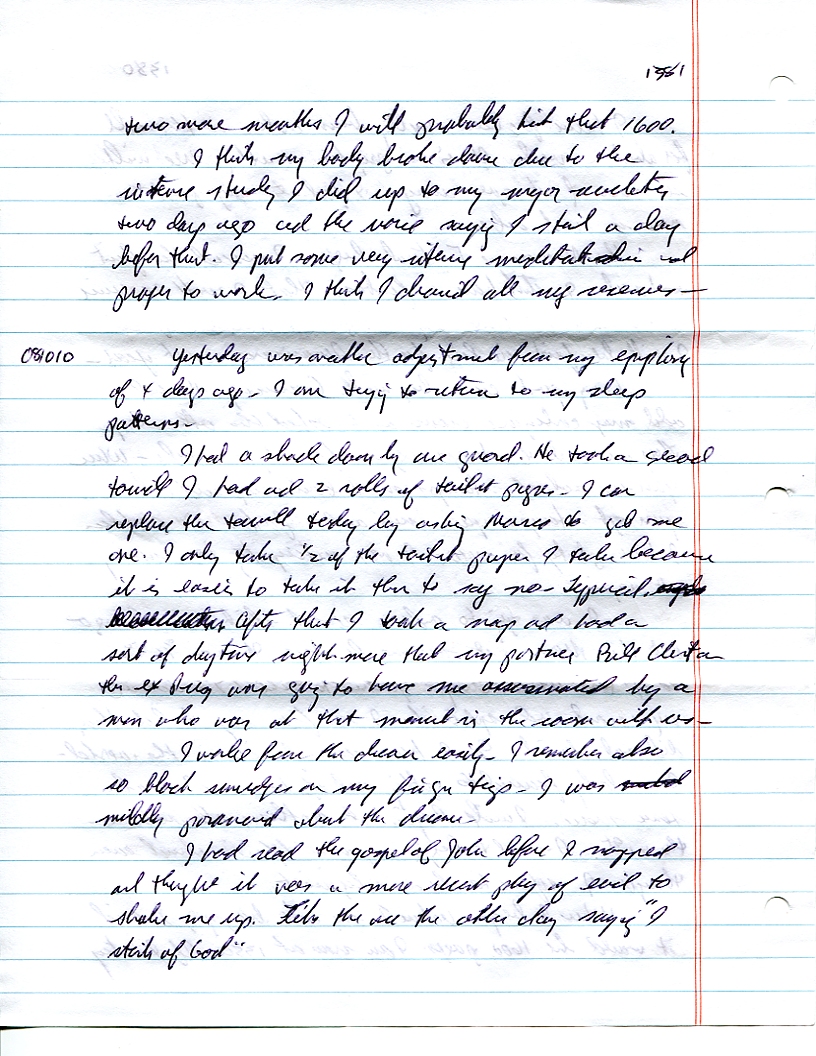 1381
two more months I will probably hit that 1600.
I think my body broke down due to the
intense study I did up to my major
two days ago and the voice saying I stink a day
before that. I put some very intense meditation and
prayer to work. I think I drained all my reserves —
081010 Yesterday was another adjustment from my epiphany
of 4 days ago - I am trying to return to my sleep
patterns -
I had a shake down by one guard. He took a second
towell I had and 2 rolls of toilet paper - I can
replace the towell today by asking to get me
one. I only take 1/2 of the toilet paper I take because
it is easier to take it then to say no - Typical.
After that I took a nap and had a
sort of daytime nightmare that my partner Bill Clinton
the ex Prez was going to have me assassinated by a
man who was at that moment in the room with us -
I woke from the dream easily - I remember also
so black smudges on my finger tips - I was
mildly paranoid about the dream -
I had read the gospel of John before I napped
and thought it was a more recent ploy of evil to
shake me up. Like the one the other day saying "I
stink of God"